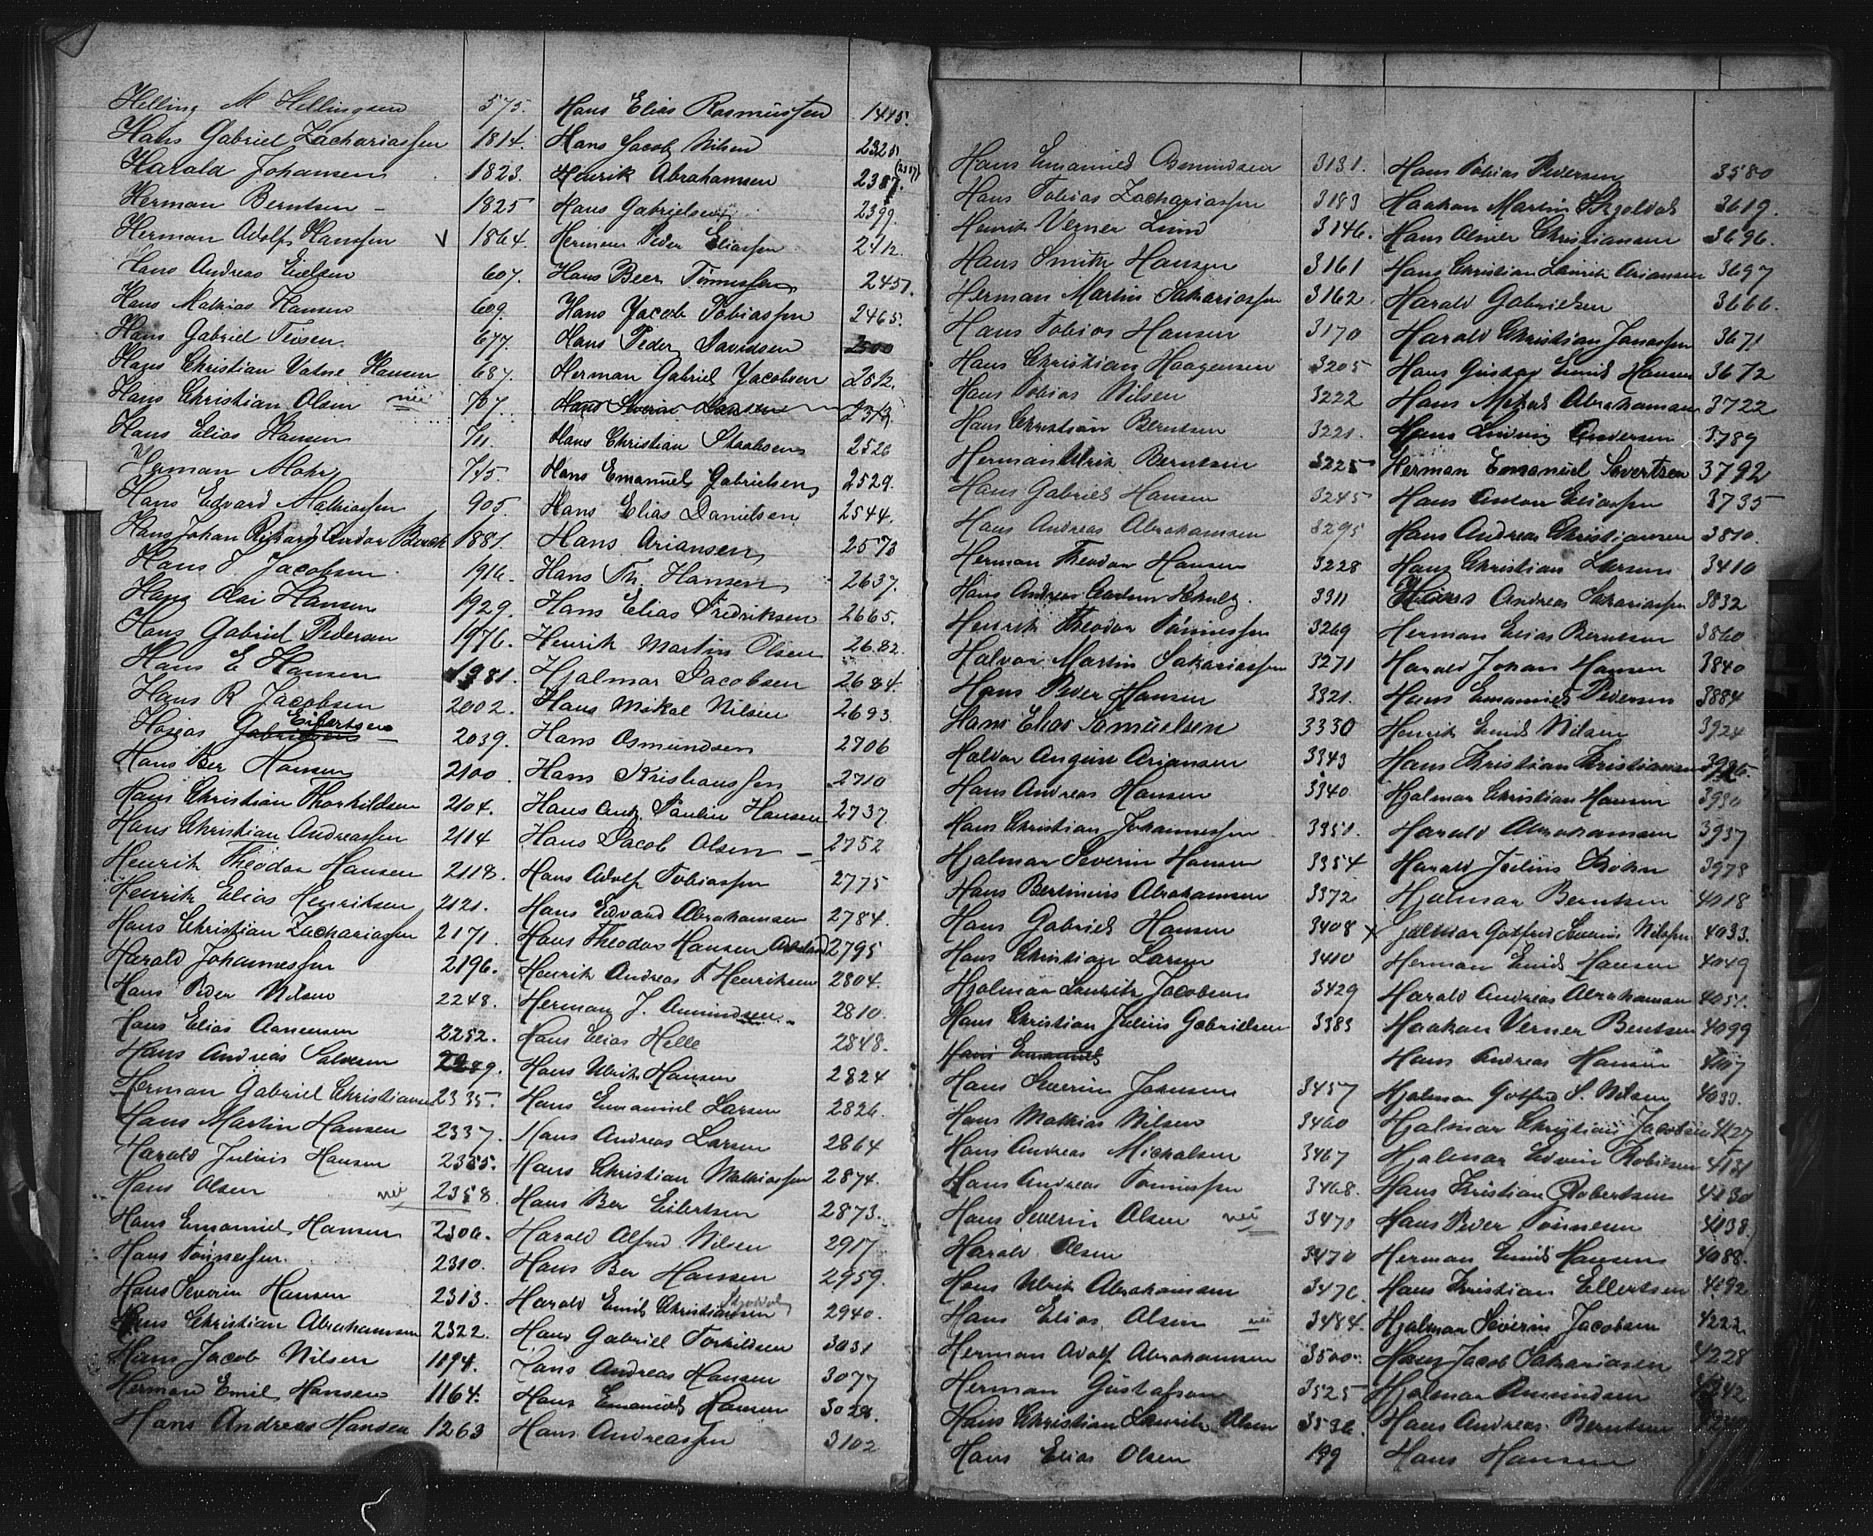 Helling M Hellingsen 575.
Hans Gabriel Zachariassen 1814.
Harald Johansen 1823.
Herman Berntsen 1825
Herman Adolf Hanssen √ 1864.
Hans Andreas Eielsen 607.
Hans Mathias Hansen 609.
Hans Gabriel 677.
Hans Christian Hansen 687.
Hans Christian Olsen nei 707.
Hans Elias Hansen 711
Herman Mohr 715.
Hans Edvard Mathiassen 905.
Hans Johan 1881.
Hans J Jacobsen 1916.
Hans Olai Hansen 1929.
Hans Gabriel Pedersen 1976.
Hans E Hansen 1981.
Hans R Jacobsen 2002.
Eilertsen
Hans Gabrielsen 2039.
Hans Ber Hansen 2100.
Hans Christian Thorkildsen 2104.
Hans Christian Andreassen 2114
Henrik Theodor Hansen 2118.
Henrik Elias Henriksen 2121.
Hans Christian Zachariassen 2171.
Harald Johannessen 2196.
Hans Peder Nilsen 2248.
Hans Elias Aanensen 2252.
Hans Andreas Salvesen 2289.
Herman Gabriel Christiansen 2335.
Hans Martin Hansen 2337.
Harald Julius Hansen 2355.
Hans Olsen nei 2358.
Hans Emanuel Hansen 2306.
Hans Tønnessen 2310.
Hans Severin Hansen 2313.
Hans Christian Abrahamsen 2322.
Hans Jacob Nilsen 1194.
Herman Emil Hansen 1164.
Hans Andreas Hansen 1263
Hans Elias Rasmussen 1445.
Hans Jacob Nilsen 2325
Henrik Abrahamsen 2387.
Hans Gabrielsen 2399.
Herman Peder Eliassen 2412.
Hans Beer Tønnessen 2457.
Hans Jacob Tobiassen 2465.
Hans Peder Davidsen 2500
Herman Gabriel Jacobsen 2512.
Hans Severin
Hans Christian 2526
Hans Emanuel Gabrielsen 2529.
Hans Elias Danielsen 2544.
Hans Ariansen 2573
Hans Th. Hansen 2637.
Hans Elias Fredriksen 2665.
Henrik Martin Olsen 2682.
Hjalmar Jacobsen 2684.
Hans Mikal Nilsen 2693
Hans Osmundsen 2706
Hans Kristianssen 2710
Hans Paulin Hansen 2737
Hans Jacob Olsen 2752
Hans Adolf Tobiassen 2775
Hans Edvard Abrahamsen 2784.
Hans Theodor Hansen 2795
Henrik Andreas F Henriksen 2804.
Herman J. Amundsen 2810.
Hans Elias Helle 2848.
Hans Ulrik Hansen 2824
Hans Emanuel Larsen 2826.
Hans Andreas Larsen 2864
Hans Christian Mathiassen 2874.
Hans Ber Eilertsen 2873.
Harald Alfred Nilsen 2917
Hans Ber Hansen 2959.
Harald Emil Christiansen 2940.
Hans Gabriel Torkildsen 3031
Hans Andreas Hansen 3077
Hans Emanuel Hansen 3028.
Hans Andreassen 3102
Hans Emanuel Osmundsen 3131.
Hans Tobias Zachariassen 3183
Henrik Verner Lund 3146.
Hans Smith Hansen 3161
Herman Martin Sakariassen 3162.
Hans Tobias Hansen 3170
Hans Christian Haagensen 3205
Hans Tobias Nilsen 3222
Hans Christian Berntsen 3221.
Herman Ulrik Berntsen 3225
Hans Gabriel Hansen 3245
Hans Andreas Abrahamsen 3295
Herman Theodor Hansen 3228
Hans Andreas Schultz. 3311
Henrik Theodor Tønnessen 3269
Halvor Martin Sakariassen 3271
Hans Peder Hansen 3321.
Hans Elias Samuelsen 3330
Halvor August Ariansen 3343
Hans Andreas Hansen 3340
Hans Christian Johannessen 3351.
Hjalmar Severin Hansen 3354
Hans Bertinius Abrahamsen 3372
Hans Gabriel Hansen 3408
Hans Christian Larsen 3410
Hjalmar Laurits Jacobsen 3429
Hans Christian Julius Gabrielsen 3383
Hans Emanuel
Hans Severin Johnsen 3457
Hans Mathias Nilsen 3460
Hans Andreas Michalsen 3467
Hans Andreas Tønnessen 3468.
Hans Severin Olsen nei 3471
Harald Olsen 3470
Hans Ulrik Abrahamsen 3476
Hans Elias Olsen nei 3484.
Herman Adolf Abrahamsen 3500.
Herman Gustafson 3525
Hans Christian Laurits Olsen 3536.
Hans Elias Olsen 199
Hans Tobias Pedersen 3580
Haakon Martin 3619.
Hans Oliver Christiansen 3696.
Hans Christian Laurits Ariansen 3697
Harald Gabrielsen 3666.
Harald Christian Jonassen 3671
Hans Gustav Emil Hansen 3672
Hans Mikal Abrahamsen 3722
Hans Ludvig Andersen 3789
Herman Emanuel Sivertsen 3792
Hans Anton Eliassen 3735
Hans Andreas Christiansen 3810.
Hans Christian Larsen 3410
Hans Andreas Sakariassen 3832
Herman Elias Berntsen 3860
Harald Johan Hansen 3840
Hans Emanuel Pedersen 3884
Henrik Emil Nilsen 3924
Hans Kristian Kristiansen
Hjalmar Christian Hansen 3930
Harald Abrahamsen 3937
Harald Julius Bohn 3978
Hjalmar Berntsen 4018
x Hjalmar Gotfred Severin Nilssen 4033.
Herman Emil Hansen 4049
Harald Andreas Abrahamsen 4051.
Haakon Verner Bentsen 4099
Hans Andreas Hansen 4107
Hjalmar Gotfred S. Nilsen 4033.
Hjalmar Christian Jacobsen 4127
Hjalmar Edvin Robertsen 4131
Hans Kristian Robertsen 4130
Hans Peder Tønnesen 4138.
Herman Emil Hansen 4088.
Hans Kristian Ellertsen 4192
Hjalmar Severin Jacobsen 4222
Hans Jacob Sakariasen 4228
Hjalmar Amundsen 4242
Hans Andreas Berntsen
Hans Hansen